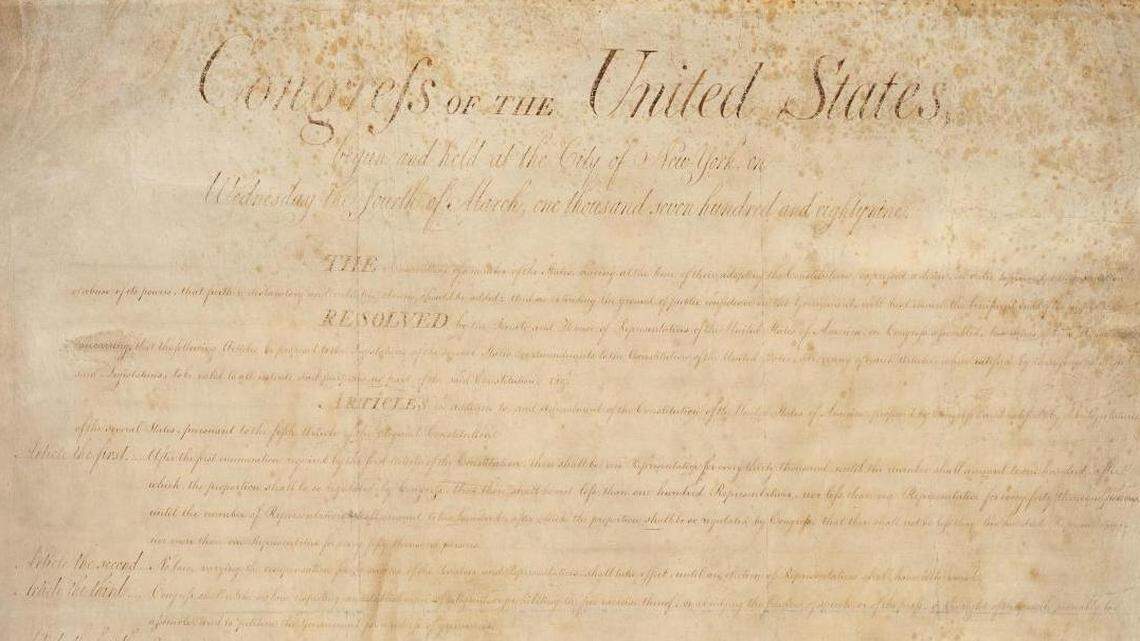 Congreſs OF THE United States,
begun and held at the City of New York, on
Wednesday the fourth of March, one thousand seven hundred and eighty nine.
THE of the States, having at the time of their adopting the Constitution, expreſsed a desire, in order
or abuse of its powers, that further declaratory and restrictive clauses should be added: And as extending the ground of public confidence in the Government, will best ensure the
RESOLVED by the Senate and House of Representatives of the United States of America, in Congreſs aſsembled,
concurring, that the following Articles be proposed to the Legislatures of the several States, as amendments to the Constitution of the United States, all, or any of which Articles, when ratified by
said Legislatures, to be valid to all intents and purposes, as part of the said Constitution; viz.
ARTICLES in addition to, and amendment of the Constitution of the United States of America, proposed by Congreſs and ratified by the Legislatures
of the several States, pursuant to the fifth Article of the original Constitution.
Article the first. After the first enumeration required by the first Article of the Constitution, there shall be one Representative for every thirty thousand, until the number shall amount to one hundred, after
which, the proportion shall be so regulated by Congreſs, that there shall be not leſs than one hundred Representatives, nor leſs than one Representative for every forty thousand persons,
until the number of Representatives shall amount to two hundred, after which the proportion shall be so regulated by Congreſs, that there shall not be leſs than two hundred Representatives,
nor more than one Representative for every fifty thousand persons.
Article the second. No law, varying the compensation for the services of the Senators and Representatives, shall take effect, until an election of Representatives shall have intervened.
Article the third. Congreſs shall make no law respecting an establishment of religion, or prohibiting the free exercise thereof; or abridging the freedom of speech, or of the preſs; or the right of the people peaceably to
aſsemble, and to petition the Government for a redreſs of grievances.